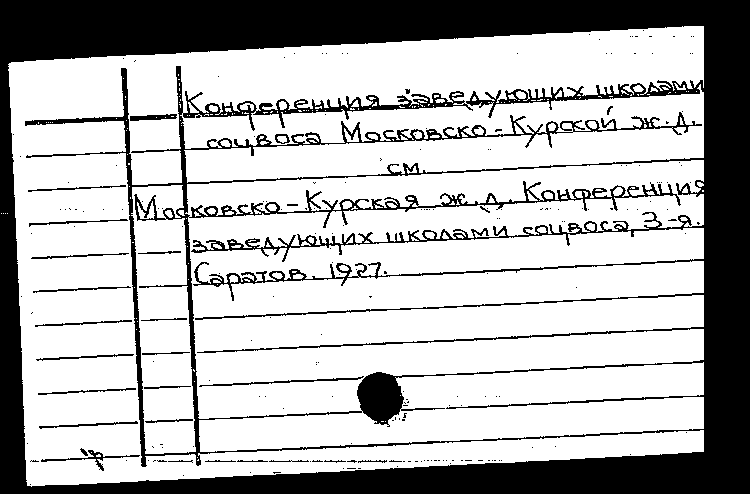 Конференция заведующих школами
соцвоса Московско-Курской ж.д.
см.
Московско-Курская ж.д. Конференция
заведующих школами соцвоса, 3-я.
Саратов. 1927.